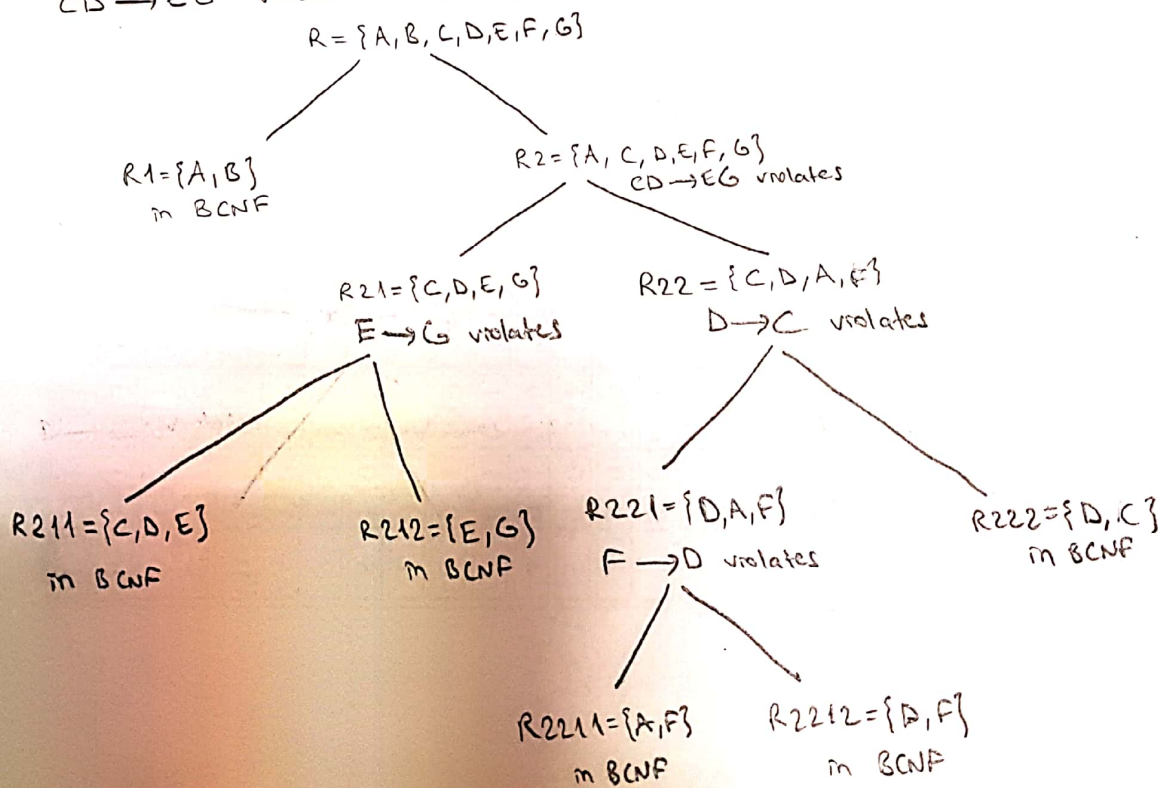 R = {A, B, C, D, E, F, G}
R1={A,B}
in BCNF
R2={A, C, D, E, F, G}
CD→EG violates
R21={C,D,E,G}
E→G violates
R22={C,D,A,F}
D→C violates
R211={C,D,E}
in BCNF
R212={E,G}
in BCNF
R221={D,A,F}
F→D violates
R222={D,C}
in BCNF
R2211={A,F}
in BCNF
R2212={D,F}
in BCNF